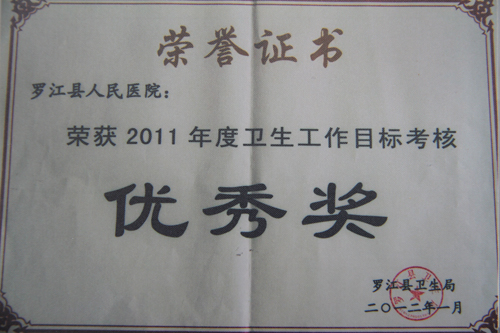 荣誉证书
罗江县人民医院：
荣获 2011 年度卫生工作目标考核
优秀奖
罗江县卫生局
二〇一二年一月